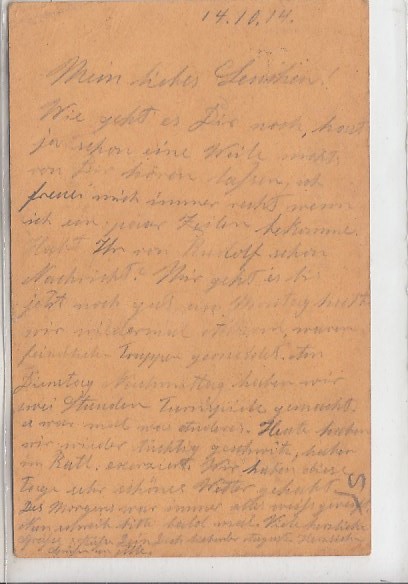 14.10.14.
Mein liebes Lenchen!
Wie geht es Dir noch, hast
ja schon eine Weile nichts
von Dir hören lassen, ich
freue mich immer recht wenn
ich ein paar Zeilen bekomme.
Habt Ihr von Rudolf schon
Nachricht? Mir geht es bis
jetzt noch gut, am Montag hatten
wir wiedermal waren
feindliche Truppen gemeldet. Am
Dienstag Nachmittag haben wir
zwei Stunden Turnspiele gemacht,
war mal was anderes. Heute haben
wir wieder tüchtig geschwitzt, haben
im Batl. exerziert. Wir haben diese
Tage sehr schönes Wetter gehabt
Des Morgens war immer alles weiß
Nun schreib bitte bald mal. Viele herzliche
Grüße Dein Dich